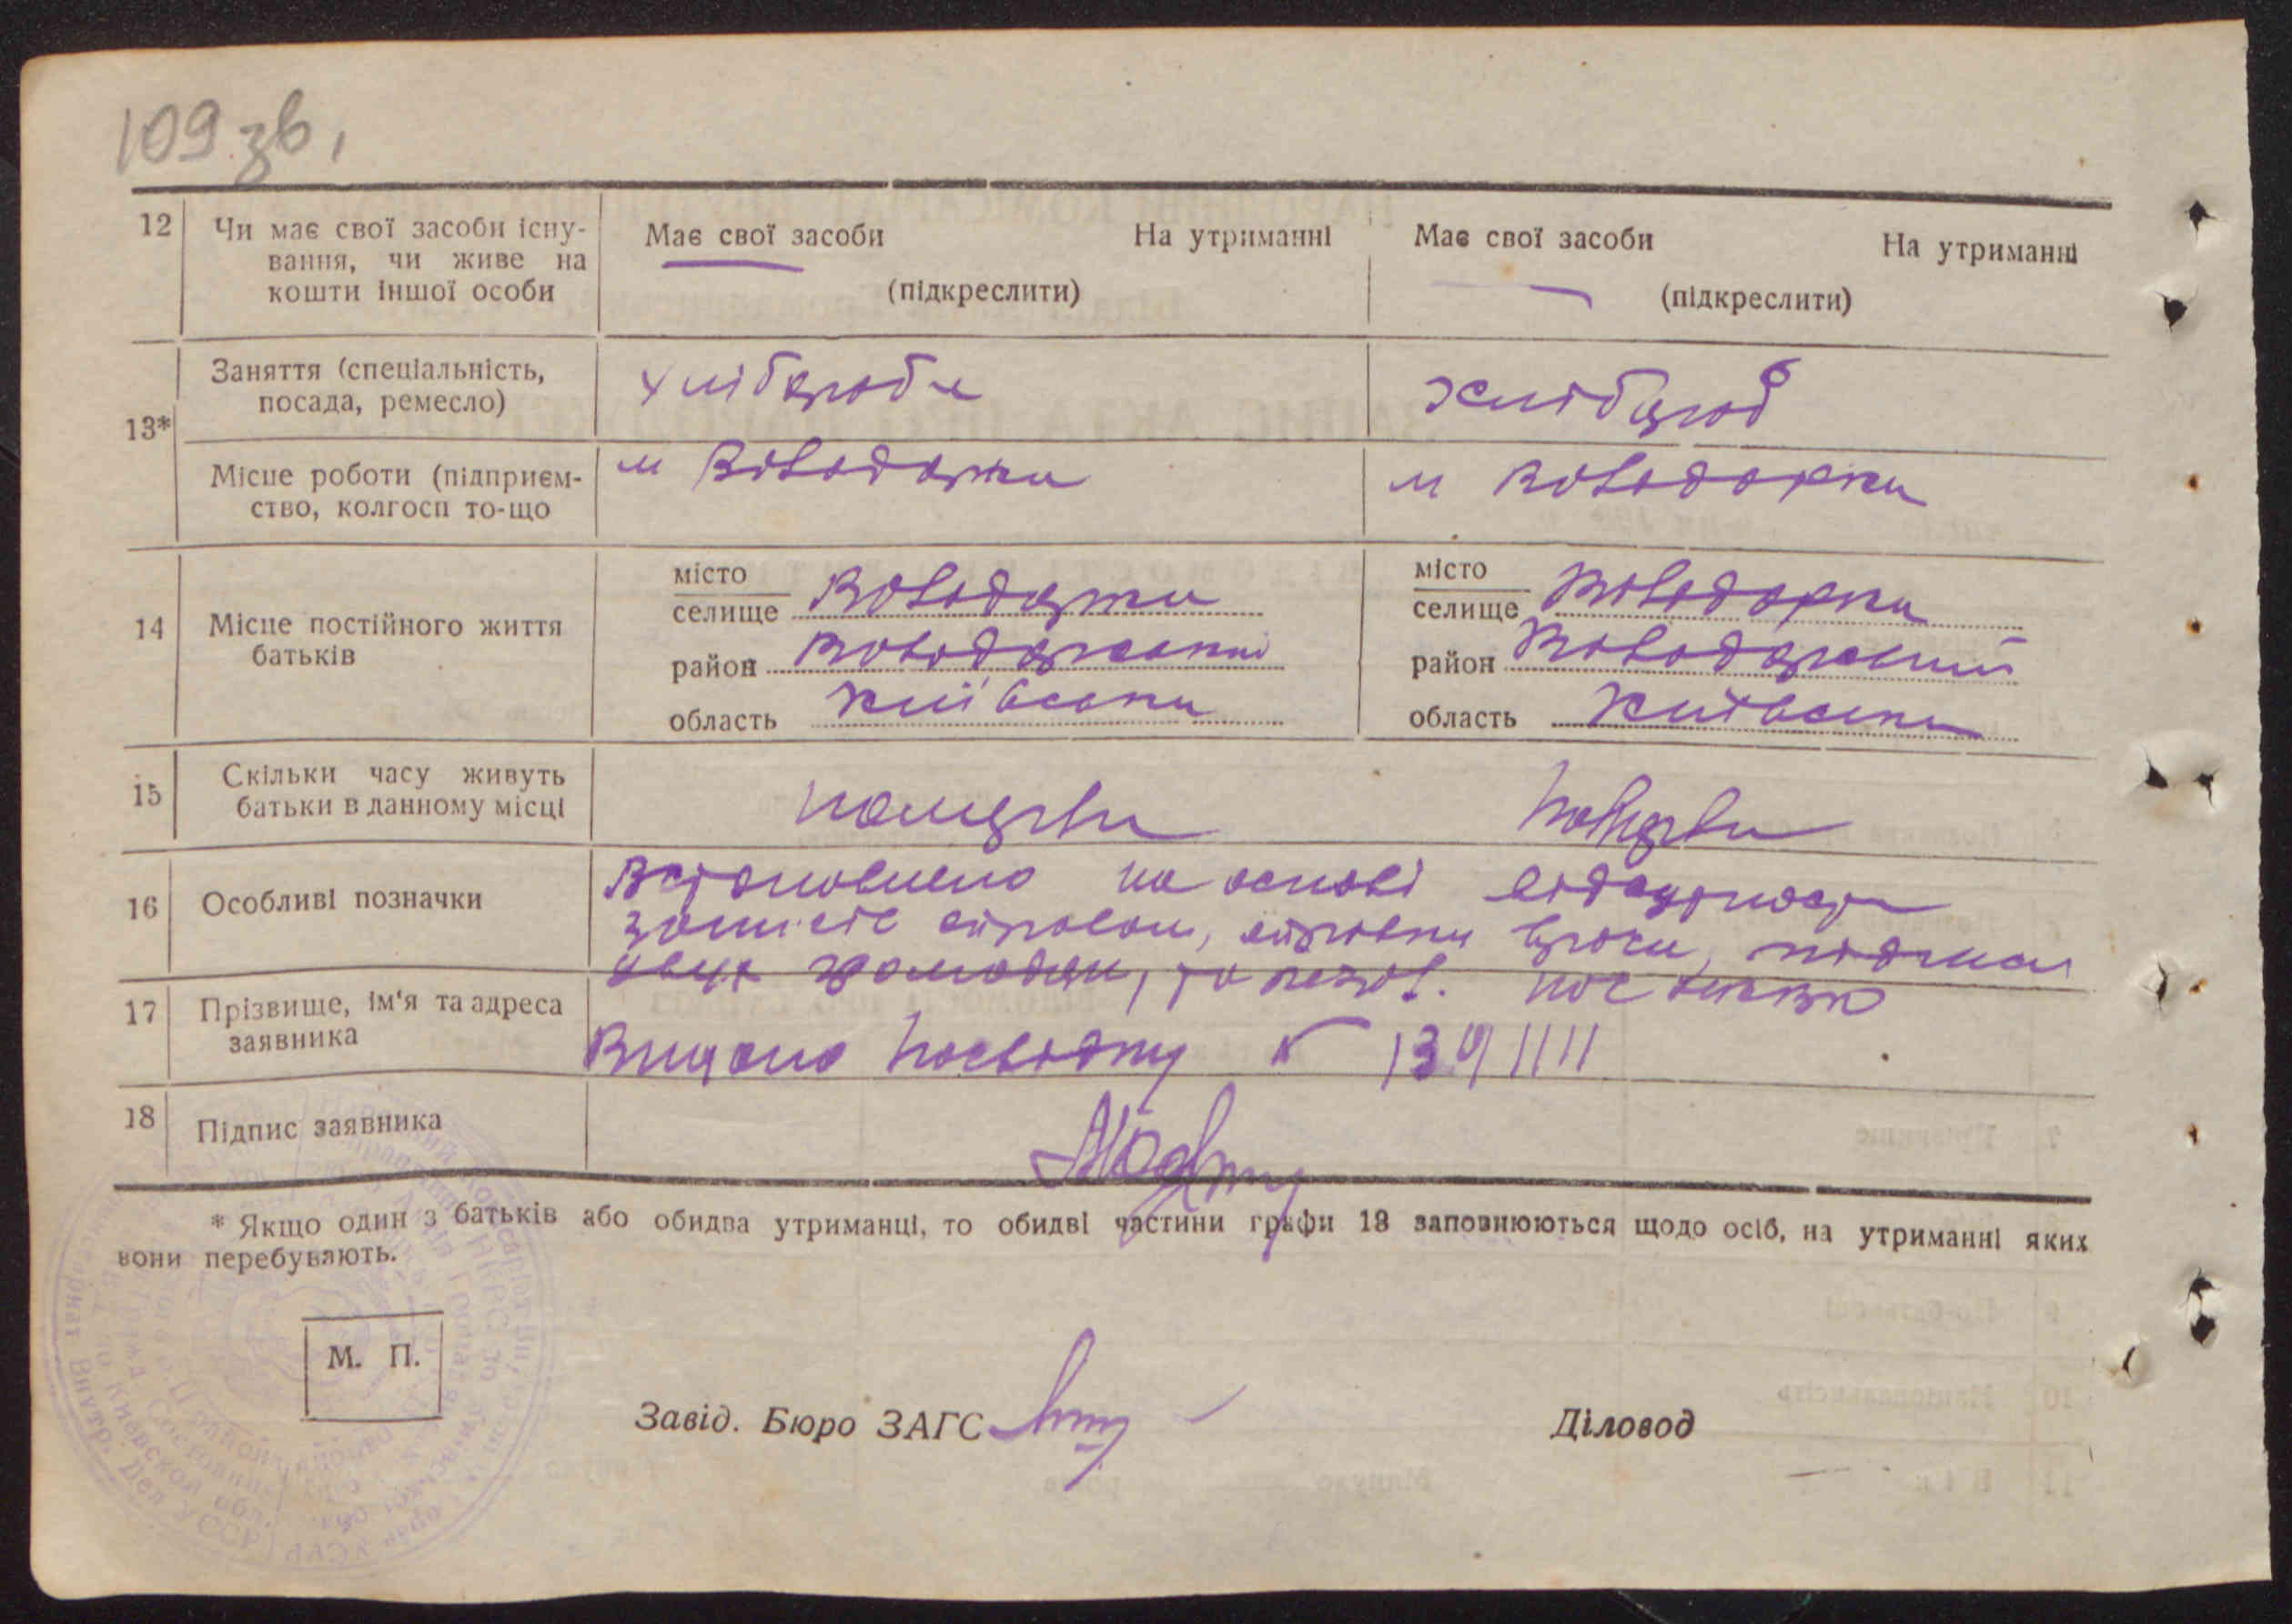 109 зв.
12 Чи має свої засоби існу-
вання, чи живе на
кошти іншої особи
Має свої засоби На утриманні
(підкреслити)
Має свої засоби На утриманні
(підкреслити)
13*
Заняття (спеціальність,
посада, ремесло)
хлібороб
хлібороб
Місце роботи (підприєм-
ство, колгосп то-що
м Володарка
м Володарка
14 Місце постійного життя
батьків
місто
селище Володарка
район Володарський
область Київська
місто
селище Володарка
район Володарський
область Київська
15 Скільки часу живуть
батьки в данному місці
16 Особливі позначки
Встановлено на основі
справки
громадян, та
17 Прізвище, ім'я та адреса
заявника
Видано посвідку №
18 Підпис заявника
* Якщо один з батьків або обидва утриманці, то обидві частини графи 13 заповнюються щодо осіб, на утриманні яких
вони перебувають.
М. П.
Завід. Бюро ЗАГС
Діловод